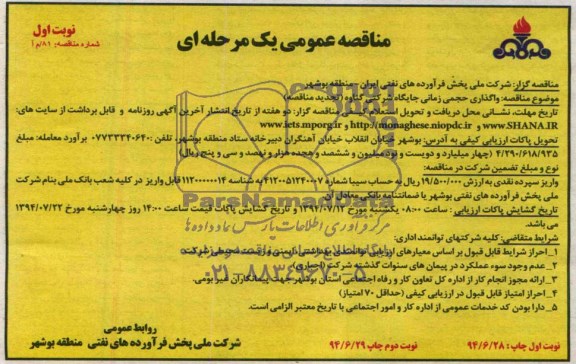 نوبت اول
شماره مناقصه: ۸۱/م ا
مناقصه عمومی یک مرحله ای
مناقصه گزار: شرکت ملی پخش فرآورده های نفتی ایران - منطقه بوشهر
موضوع مناقصه: واگذاری حجمی زمانی جایگاه شرکتی گناوه (تجدید مناقصه)
تاریخ مهلت، نشانی محل دریافت و تحویل مناقصه گزار: دو هفته از تاریخ انتشار آخرین آگهی روزنامه و قابل برداشت از سایت های:
www.SHANA.IR و http://monaghese.niopdc.ir و www.iets.mporg.ir
تحویل پاکات ارزیابی کیفی به آدرس: بوشهر خیابان انقلاب خیابان آهنگران دبیرخانه ستاد منطقه بوشهر، تلفن: ۰۷۷۳۳۳۴۰۶۴۰ برآورد معامله: مبلغ
۴/۲۹۰/۶۱۸/۹۳۵ (چهار میلیارد و دویست و نود میلیون و ششصد و هجده هزار و نهصد و سی و پنج ریال)
نوع و مبلغ تضمین شرکت در مناقصه:
واریز سپرده نقدی به ارزش ۱۹/۵۰۰/۰۰۰ ریال به حساب سیبا شماره شناسه قابل واریز در کلیه شعب بانک ملی بنام شرکت
ملی پخش فرآورده های نفتی بوشهر یا ضمانتنامه بانکی معادل آن
تاریخ گشایش پاکات ارزیابی: ساعت ۰۸:۰۰ یکشنبه مورخ ۱۳۹۴/۰۷/۱۲ و تاریخ گشایش پاکات قیمت ساعت ۱۴:۰۰ روز چهارشنبه مورخ ۱۳۹۴/۰۷/۲۲
می باشد.
شرایط متقاضی: کلیه شرکتهای توانمند اداری:
۱_ احراز شرایط قابل قبول بر اساس معیارهای ارزیابی
۲_ عدم وجود سوء عملکرد در پیمان های سنوات گذشته شرکت (اجباری)
۳_ ارائه مجوز انجام کار از اداره کل تعاون کار و رفاه اجتماعی استان بوشهر جهت پیمانکاران غیر بومی.
۴_ احراز امتیاز قابل قبول در ارزیابی کیفی (حداقل ۷۰ امتیاز)
۵_ دارا بودن کد خدمات عمومی از اداره کار و امور اجتماعی با تاریخ معتبر الزامی است.
روابط عمومی
شرکت ملی پخش فرآورده های نفتی منطقه بوشهر
نوبت اول چاپ: ۹۴/۶/۲۸
نوبت دوم چاپ ۹۴/۶/۲۹
ParsNamadData
مرکز فرآوری اطلاعات پارس نماد داده ها
۰۲۱-۸۸۳۴۹۶۷۰-۵